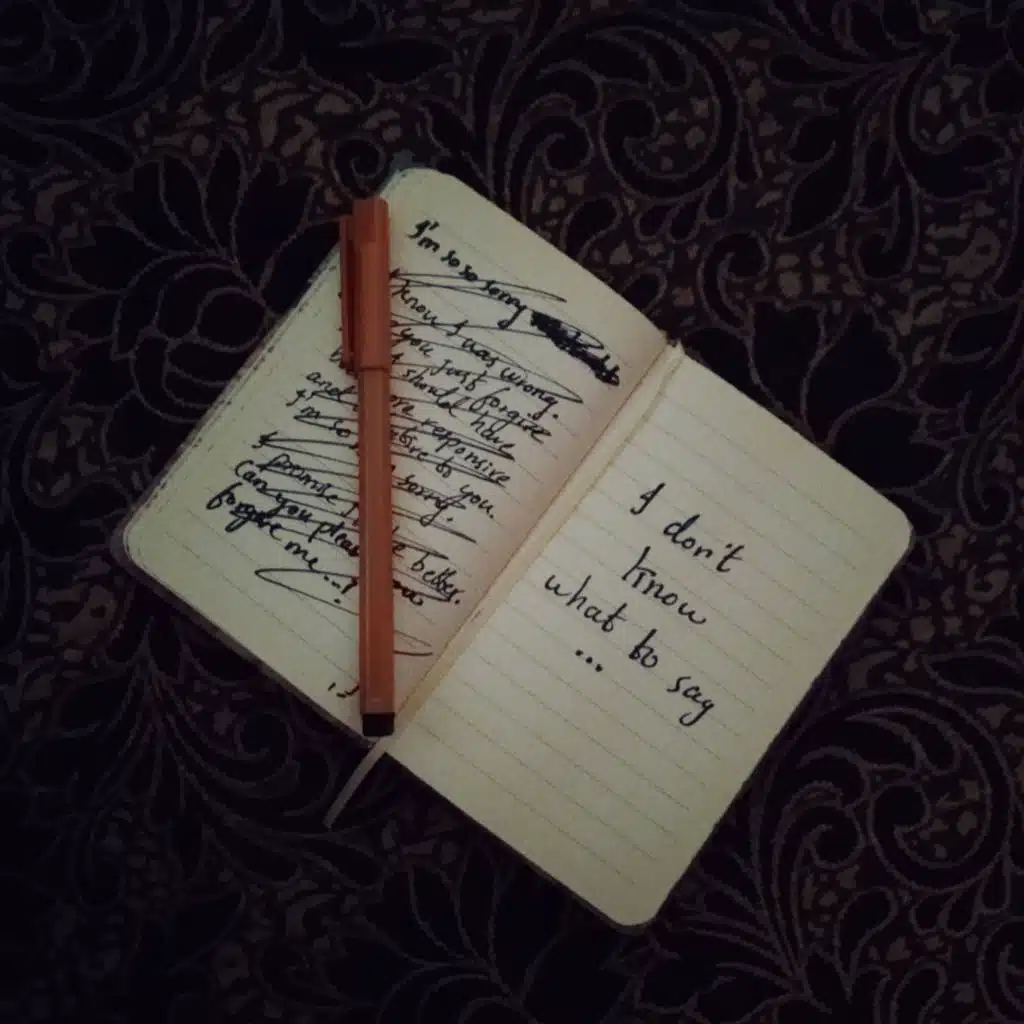 I'm so so sorry
know I was wrong.
you just forgive
should have
and more responsive
I'm so to you.
sorry.
promise better.
Can you please
forgive me...!
I don't
know
what to say
...